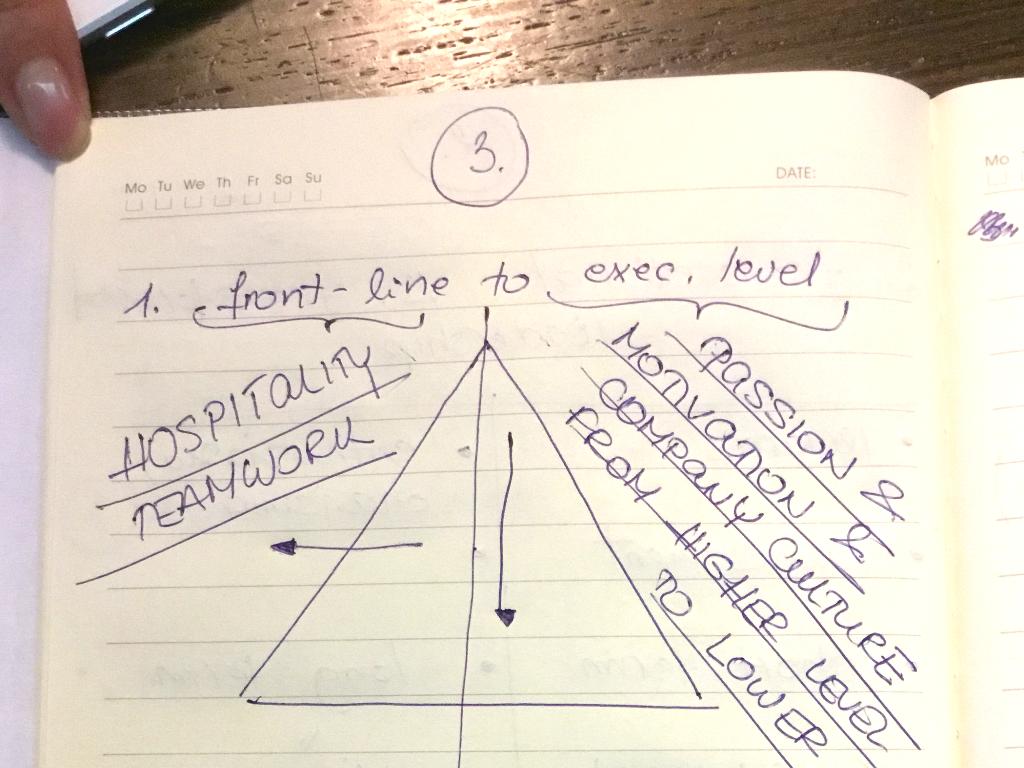 3.
Mo Tu We Th Fr Sa Su
DATE:
Mo
1. front-line to exec. level
HOSPITALITY
TEAMWORK
PASSION &
MOTIVATION &
COMPANY CULTURE
FROM HIGHER LEVEL
TO LOWER